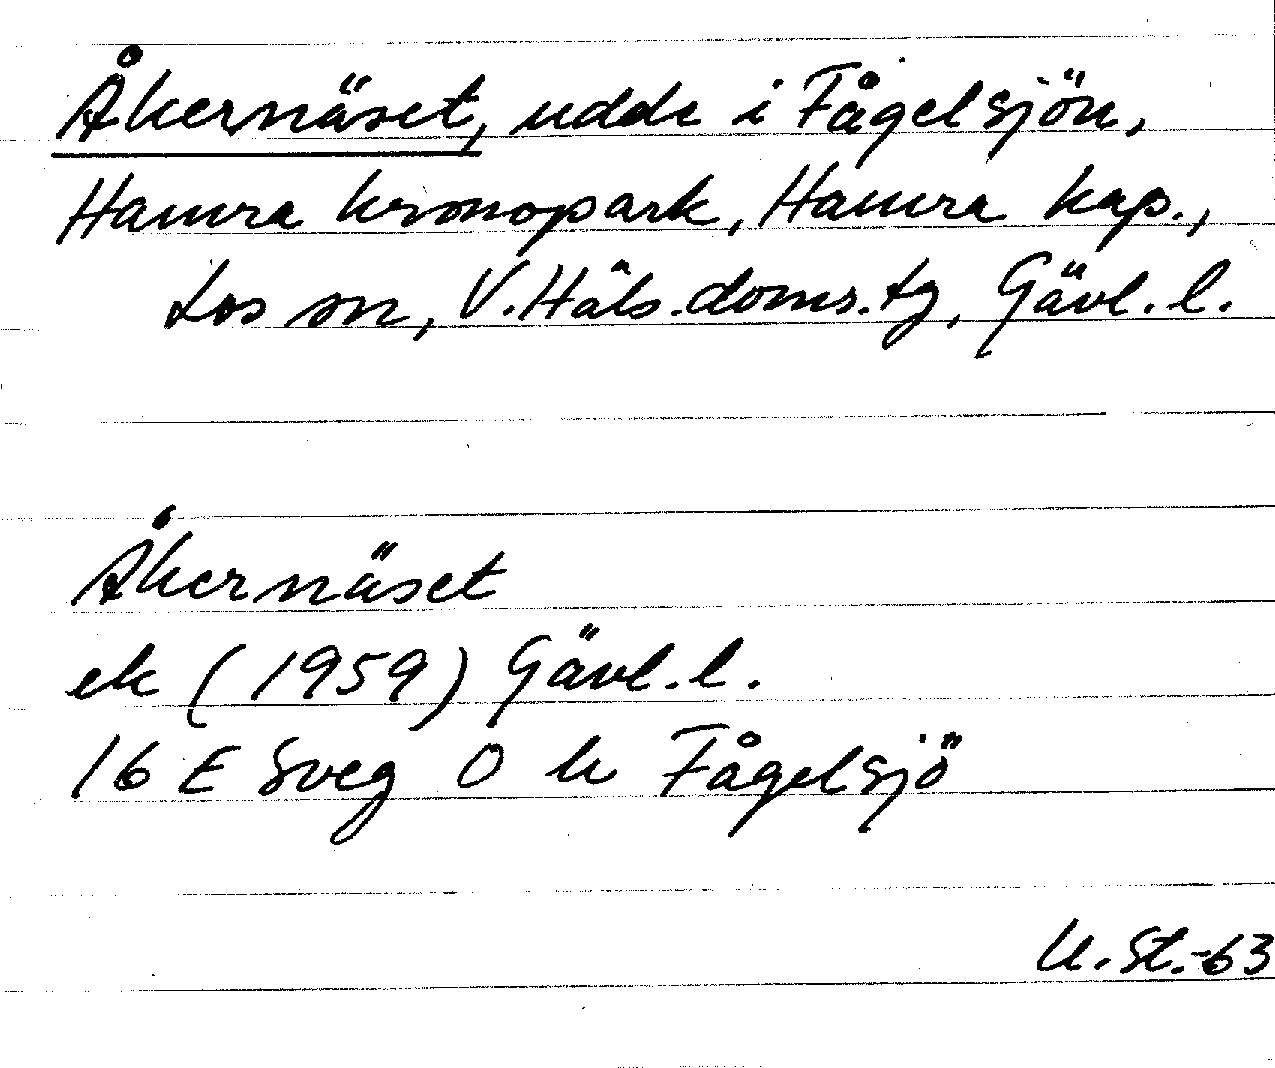 Åkernäset, udde i Fågelsjön,
Hamra kronopark, Hamra kap.,
Los sn, V.Häls.doms.tg, Gävl.l.
Åkernäset
ek (1959) Gävl.l.
16 E Sveg O k Fågelsjö
U.St.-63